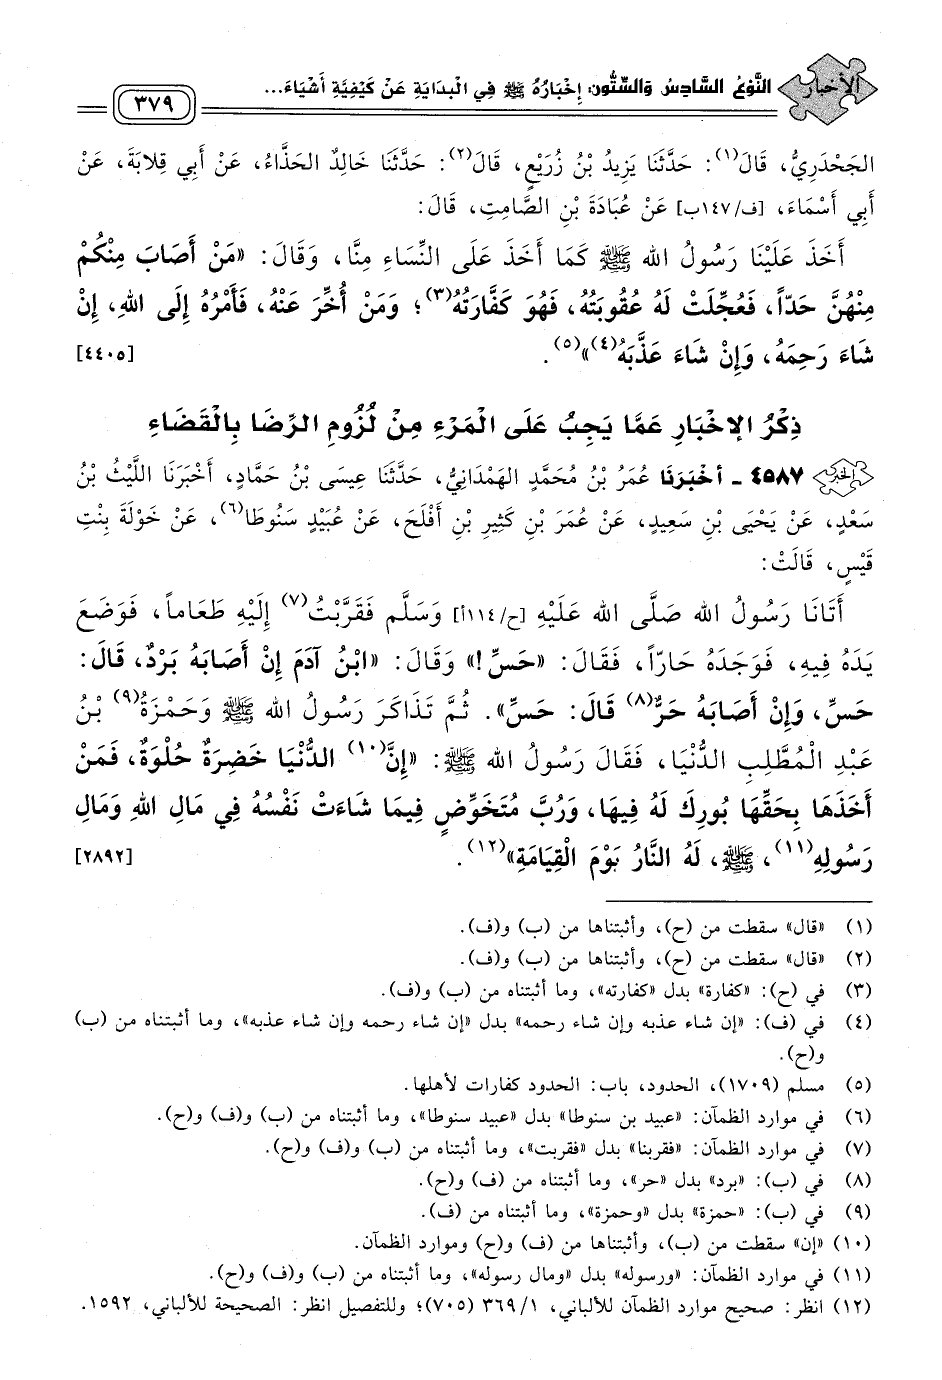 الأخبار
النَّوْعُ السَّادِسُ وَالسِّتُّونَ: إِخْبَارُهُ ﷺ فِي الْبِدَايَةِ عَنْ كَيْفِيَّةِ أَشْيَاءَ...
٣٧٩
الجَحْدَرِيُّ، قَالَ(١): حَدَّثَنَا يَزِيدُ بْنُ زُرَيْعٍ، قَالَ(٢): حَدَّثَنَا خَالِدٌ الحَذَّاءُ، عَنْ أَبِي قِلابَةَ، عَنْ
أَبِي أَسْمَاءَ، [ف/١٤٧ب] عَنْ عُبَادَةَ بْنِ الصَّامِتِ، قَالَ:
أَخَذَ عَلَيْنَا رَسُولُ الله ﷺ كَمَا أَخَذَ عَلَى النِّسَاءِ مِنَّا، وَقَالَ: «مَنْ أَصَابَ مِنْكُم
مِنْهُنَّ حَدّاً، فَعُجِّلَتْ لَهُ عُقُوبَتُهُ، فَهُوَ كَفَّارَتُهُ(٣)؛ وَمَنْ أُخِّرَ عَنْهُ، فَأَمْرُهُ إِلَى اللهِ، إِنْ
شَاءَ رَحِمَهُ، وَإِنْ شَاءَ عَذَّبَهُ(٤)»(٥). [٤٤٠٥]
ذِكْرُ الإِخْبَارِ عَمَّا يَجِبُ عَلَى الْمَرْءِ مِنْ لُزُومِ الرِّضَا بِالْقَضَاءِ
الخبر ٤٥٨٧ - أَخْبَرَنَا عُمَرُ بْنُ مُحَمَّدٍ الهَمْدَانِيُّ، حَدَّثَنَا عِيسَى بْنُ حَمَّادٍ، أَخْبَرَنَا اللَّيْثُ بْنُ
سَعْدٍ، عَنْ يَحْيَى بْنِ سَعِيدٍ، عَنْ عُمَرَ بْنِ كَثِيرِ بْنِ أَفْلَحَ، عَنْ عُبَيْدٍ سَنُوطَا(٦)، عَنْ خَوْلَةَ بِنْتِ
قَيْسٍ، قَالَتْ:
أَتَانَا رَسُولُ الله صَلَّى الله عَلَيْهِ [ح/١١٤أ] وَسَلَّم فَقَرَّبْتُ(٧) إِلَيْهِ طَعَاماً، فَوَضَعَ
يَدَهُ فِيهِ، فَوَجَدَهُ حَارّاً، فَقَالَ: «حَسِّ!» وَقَالَ: «ابْنُ آدَمَ إِنْ أَصَابَهُ بَرْدٌ، قَالَ:
حَسِّ، وَإِنْ أَصَابَهُ حَرٌّ(٨) قَالَ: حَسِّ». ثُمَّ تَذَاكَرَ رَسُولُ الله ﷺ وَحَمْزَةُ(٩) بْنُ
عَبْدِ الْمُطَّلِبِ الدُّنْيَا، فَقَالَ رَسُولُ الله ﷺ: «إِنَّ(١٠) الدُّنْيَا خَضِرَةٌ حُلْوَةٌ، فَمَنْ
أَخَذَهَا بِحَقِّهَا بُورِكَ لَهُ فِيهَا، وَرُبَّ مُتَخَوِّضٍ فِيمَا شَاءَتْ نَفْسُهُ فِي مَالِ اللهِ وَمَالِ
رَسُولِهِ(١١)، ﷺ، لَهُ النَّارُ يَوْمَ الْقِيَامَةِ»(١٢). [٢٨٩٢]
(١) «قال» سقطت من (ح)، وأثبتناها من (ب) و(ف).
(٢) «قال» سقطت من (ح)، وأثبتناها من (ب) و(ف).
(٣) في (ح): «كفارة» بدل «كفارته»، وما أثبتناه من (ب) و(ف).
(٤) في (ف): «إن شاء عذبه وإن شاء رحمه» بدل «إن شاء رحمه وإن شاء عذبه»، وما أثبتناه من (ب)
و(ح).
(٥) مسلم (١٧٠٩)، الحدود، باب: الحدود كفارات لأهلها.
(٦) في موارد الظمآن: «عبيد بن سنوطا» بدل «عبيد سنوطا»، وما أثبتناه من (ب) و(ف) و(ح).
(٧) في موارد الظمآن: «فقربنا» بدل «فقربت»، وما أثبتناه من (ب) و(ف) و(ح).
(٨) في (ب): «برد» بدل «حر»، وما أثبتناه من (ف) و(ح).
(٩) في (ب): «حمزة» بدل «وحمزة»، وما أثبتناه من (ف).
(١٠) «إن» سقطت من (ب)، وأثبتناها من (ف) و(ح) وموارد الظمآن.
(١١) في موارد الظمآن: «ورسوله» بدل «ومال رسوله»، وما أثبتناه من (ب) و(ف) و(ح).
(١٢) انظر: صحيح موارد الظمآن للألباني، ٣٦٩/١ (٧٠٥)؛ وللتفصيل انظر: الصحيحة للألباني، ١٥٩٢.